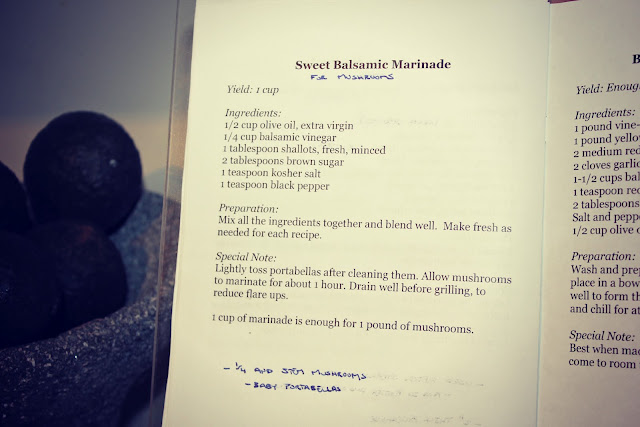 Sweet Balsamic Marinade
FOR MUSHROOMS
Yield: 1 cup
Ingredients:
1/2 cup olive oil, extra virgin
1/4 cup balsamic vinegar
1 tablespoon shallots, fresh, minced
2 tablespoons brown sugar
1 teaspoon kosher salt
1 teaspoon black pepper
Preparation:
Mix all the ingredients together and blend well. Make fresh as
needed for each recipe.
Special Note:
Lightly toss portabellas after cleaning them. Allow mushrooms
to marinate for about 1 hour. Drain well before grilling, to
reduce flare ups.
1 cup of marinade is enough for 1 pound of mushrooms.
- 1/4 AND STEM MUSHROOMS
- BABY PORTABELLAS
B
Yield: Enoug
Ingredients:
1 pound vine-
1 pound yellow
2 medium red
2 cloves garlic
1-1/2 cups bal
1 teaspoon red
2 tablespoons
Salt and peppe
1/2 cup olive o
Preparation:
Wash and prep
place in a bow
well to form th
and chill for at
Special Note:
Best when mad
come to room